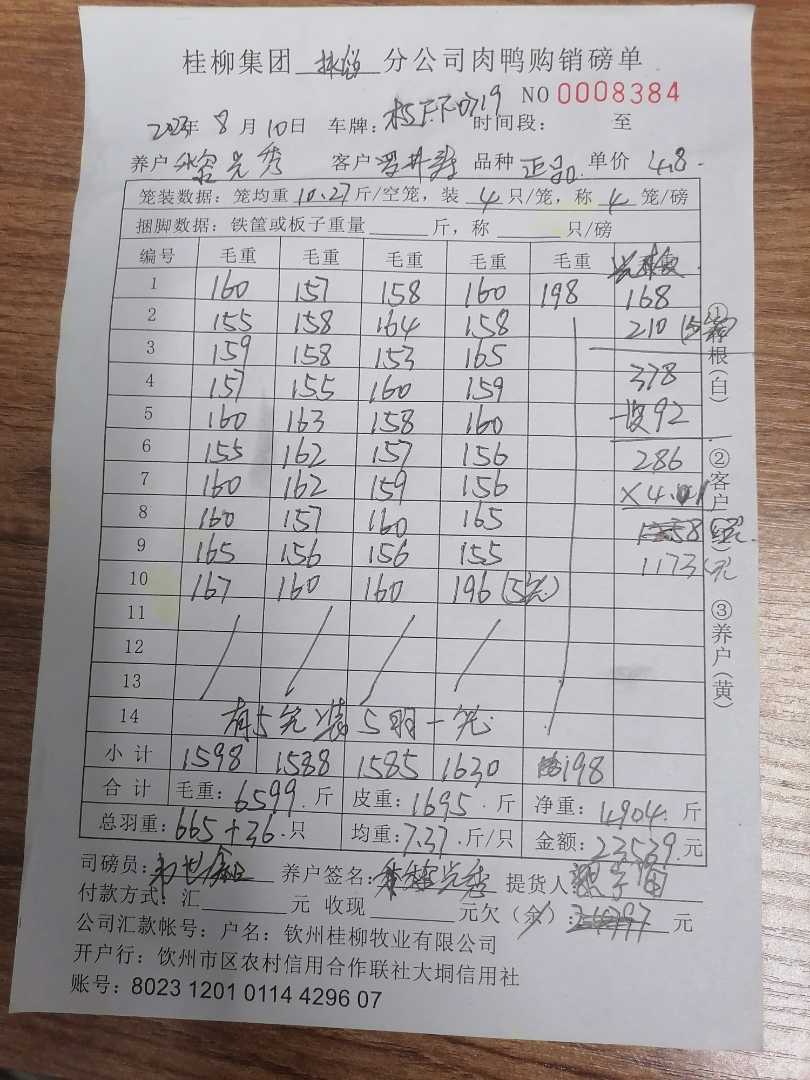 桂柳集团 分公司肉鸭购销磅单
NO 0008384
2023年 8 月 10日 车牌: 时间段: 至
养户 光秀 客户 品种 正品 单价 4.8.
笼装数据：笼均重 10.27 斤/空笼，装 4 只/笼，称 4 笼/磅
捆脚数据：铁筐或板子重量 斤，称 只/磅
编号 毛重 毛重 毛重 毛重 毛重
1 160 157 158 160 198 168
2 155 158 164 158 210
3 159 158 153 165
4 157 155 160 159 378
5 160 163 158 160 92
6 155 162 157 156 286
7 160 162 159 156
8 160 157 160 165
9 165 156 156 155 1173
10 167 160 160 196
11
12
13
14 有5 5羽一
小计 1598 1588 1585 1630 198
合计 毛重: 6599. 斤 皮重: 1695. 斤 净重: 4904. 斤
总羽重: 665+36. 只 均重: 7.37. 斤/只 金额: 23539. 元
司磅员: 养户签名: 光秀 提货人
付款方式：汇 元 收现 元欠（余）: 元
公司汇款帐号：户名：钦州桂柳牧业有限公司
开户行：钦州市区农村信用合作联社大垌信用社
账号：8023 1201 0114 4296 07
①存根(白)
②客户
③养户(黄)